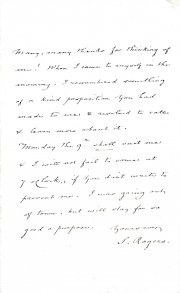 Many, many thanks for thinking of
me! When I came to myself in the
morning, I remembered something
of a kind proposition you had
made to me & wanted to
& learn more about it.
Monday the 9th shall suit me
& I will not fail to come at
7 o'clock, if you don't want to
prevent me. I was going out
of town, but will stay for so
good a purpose.
Yours ever,
J. Rogers.